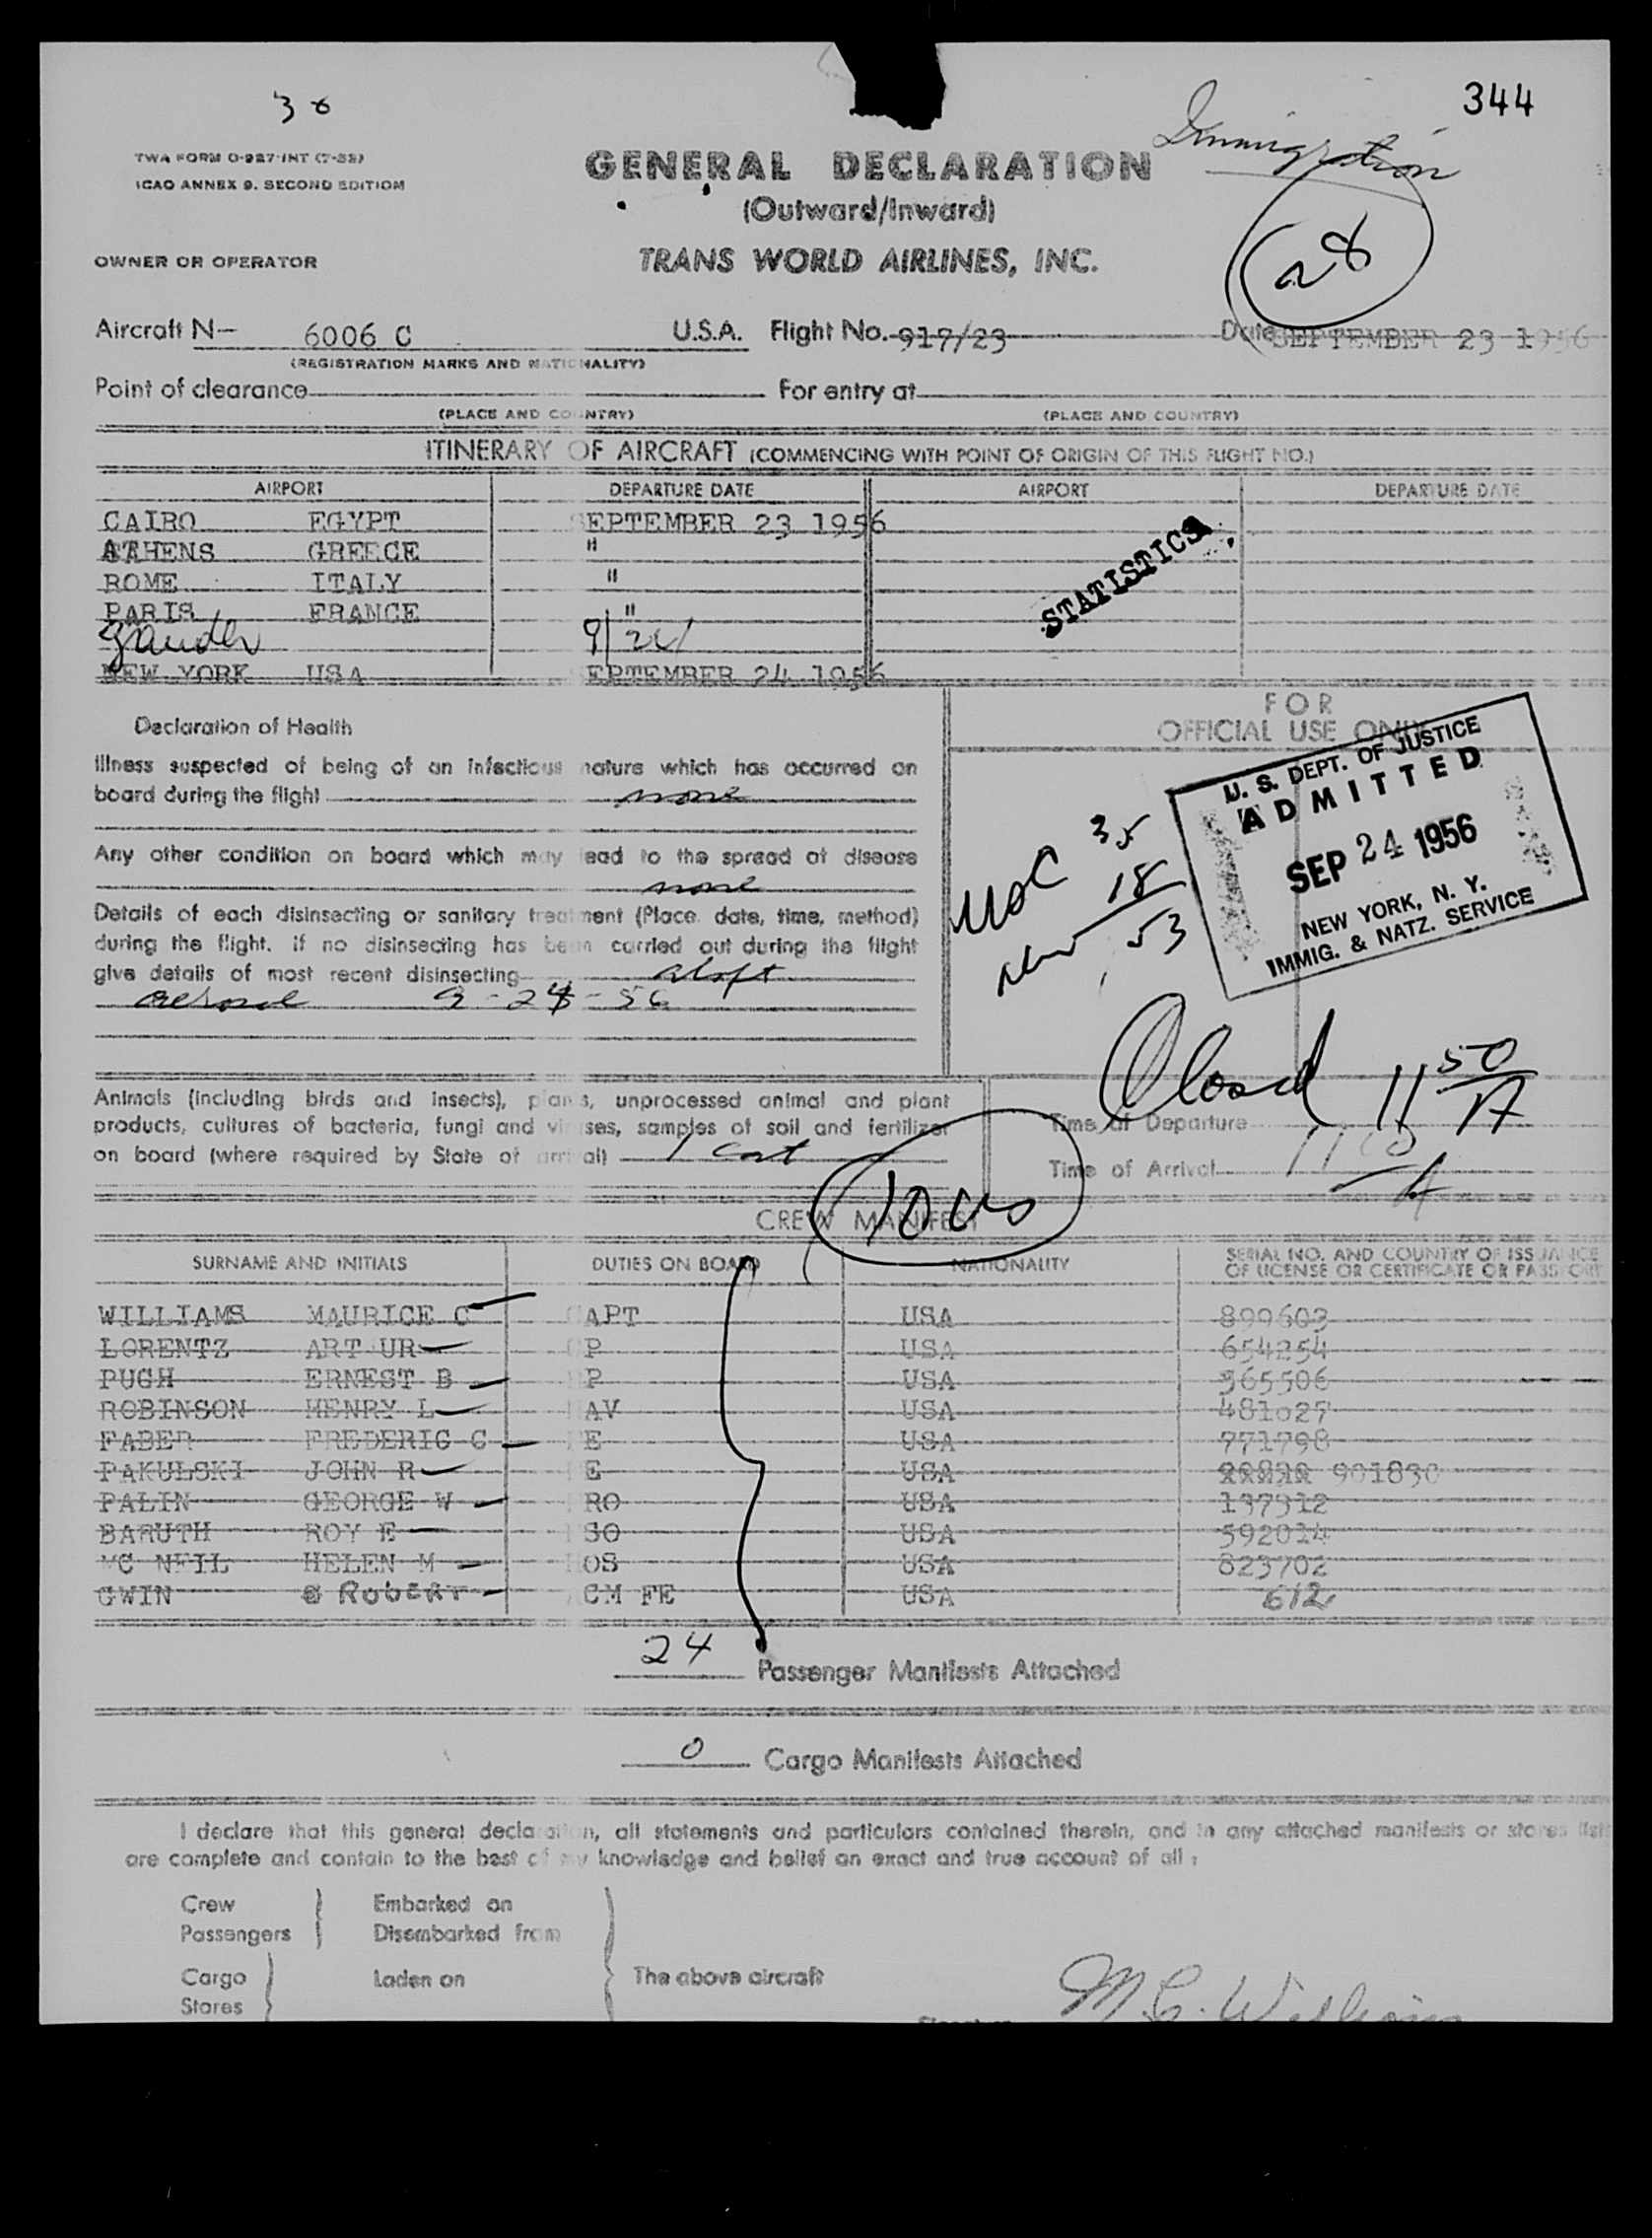 344
Immigration
TWA FORM O-927-INT
ICAO ANNEX 9. SECOND EDITION
GENERAL DECLARATION
(Outward/Inward)
28
OWNER OR OPERATOR
TRANS WORLD AIRLINES, INC.
Aircraft N- 6006 C U.S.A. Flight No. 917/23 Date SEPTEMBER 23 1956
(REGISTRATION MARKS AND NATIONALITY)
Point of clearance For entry at
(PLACE AND COUNTRY) (PLACE AND COUNTRY)
ITINERARY OF AIRCRAFT (COMMENCING WITH POINT OF ORIGIN OF THIS FLIGHT NO.)
AIRPORT DEPARTURE DATE AIRPORT DEPARTURE DATE
CAIRO EGYPT SEPTEMBER 23 1956
ATHENS GREECE "
ROME ITALY "
PARIS FRANCE "
Gander 9/24
NEW YORK USA SEPTEMBER 24 1956
STATISTICS
FOR
OFFICIAL USE ONLY
U. S. DEPT. OF JUSTICE
ADMITTED
SEP 24 1956
NEW YORK, N. Y.
IMMIG. & NATZ. SERVICE
USC 35
18
53
Declaration of Health
Illness suspected of being of an infectious nature which has occurred on
board during the flight none
Any other condition on board which may lead to the spread of disease
none
Details of each disinsecting or sanitary treatment (Place, date, time, method)
during the flight. If no disinsecting has been carried out during the flight
give details of most recent disinsecting aloft
aerosol 9-24-56
Closed 11 50 A
Animals (including birds and insects), plants, unprocessed animal and plant
products, cultures of bacteria, fungi and viruses, samples of soil and fertilizer
on board (where required by State of arrival) 1 cat
Time of Departure
Time of Arrival
CREW MANIFEST
SURNAME AND INITIALS DUTIES ON BOARD NATIONALITY SERIAL NO. AND COUNTRY OF ISSUANCE
OF LICENSE OR CERTIFICATE OR PASSPORT
WILLIAMS MAURICE C CAPT USA 899603
LORENTZ ART UR P USA 654254
PUGH ERNEST B P USA 365506
ROBINSON HENRY L NAV USA 481027
FABER FREDERIC C FE USA 771798
PAKULSKI JOHN R FE USA 901830
PALIN GEORGE W RO USA 137312
BARUTH ROY E SO USA 592014
MC NEIL HELEN M HOS USA 823702
GWIN Robert ACM FE USA 612
24 Passenger Manifests Attached
0 Cargo Manifests Attached
I declare that this general declaration, all statements and particulars contained therein, and in any attached manifests or stores list
are complete and contain to the best of my knowledge and belief an exact and true account of all :
Crew Embarked on
Passengers Disembarked from
Cargo Laden on The above aircraft
Stores
M.C. Williams